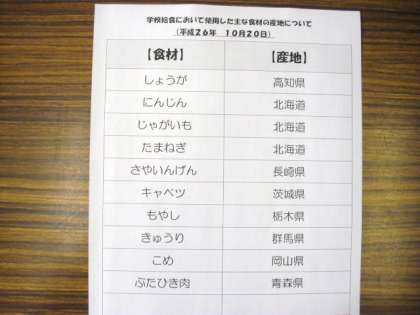 学校給食において使用した主な食材の産地について
（平成26年　10月20日）
【食材】　【産地】
しょうが　高知県
にんじん　北海道
じゃがいも　北海道
たまねぎ　北海道
さやいんげん　長崎県
キャベツ　茨城県
もやし　栃木県
きゅうり　群馬県
こめ　岡山県
ぶたひき肉　青森県